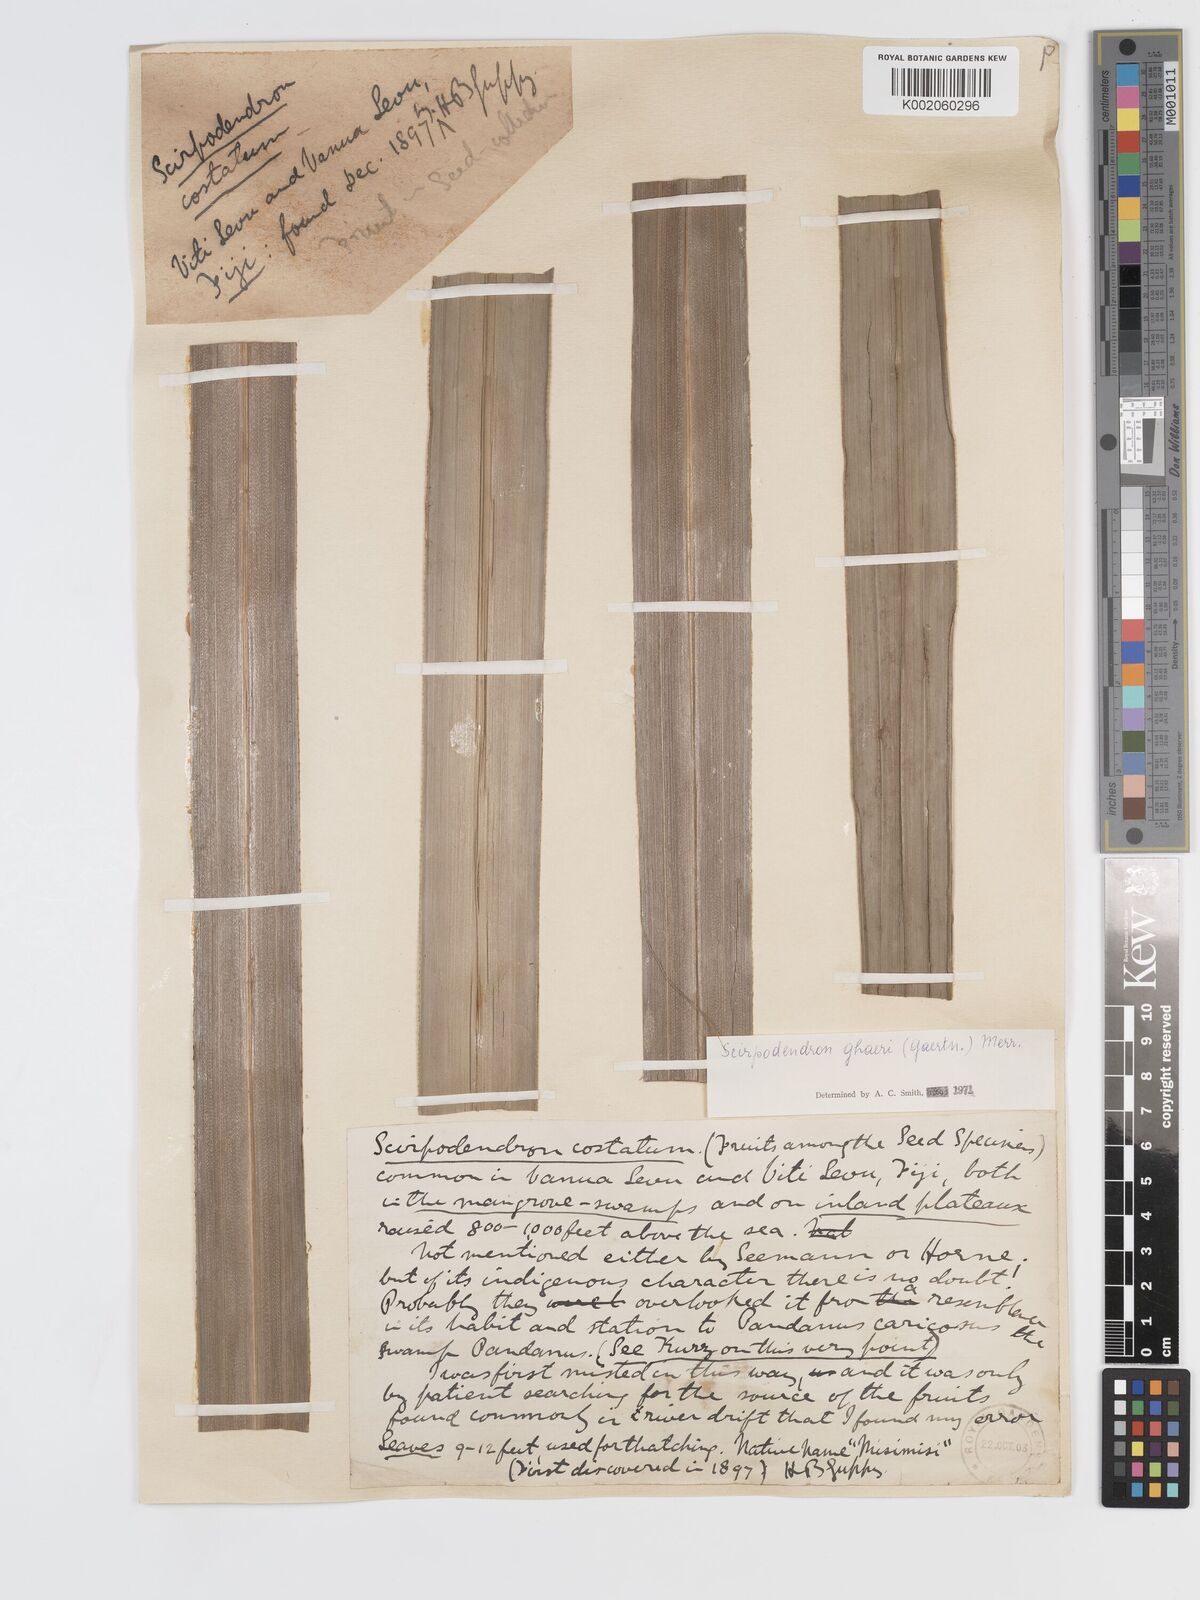 Scirpodendron
costatum
Viti Levu and Vanua Levu,
Fiji: found Dec. 1897 by H B Guppy.
Fruit in Seed-collection
ROYAL BOTANIC GARDENS KEW
K002060296
Scirpodendron ghaeri (Gaertn.) Merr.
Determined by A. C. Smith, 1971
Scirpodendron costatum. (Fruits among the Seed Specimens)
common in Vanua Levu and Viti Levu, Fiji, both
in the mangrove-swamps and on inland plateaux
raised 800-1,000 feet above the sea.
Not mentioned either by Seemann or Horne;
but of its indigenous character there is no doubt!
Probably they overlooked it from a resemblance
in its habit and station to Pandanus caricosus the
swamp Pandanus. (See Kurz on this very point)
I was first misled in this way, and it was only
by patient searching for the source of the fruits
found commonly in river drift that I found my error
Leaves 9-12 feet, used for thatching. Native name "Misimisi"
(First discovered in 1897) H B Guppy.
22.OCT.03
M001011
Don Williams
Density
inches
Kew
Royal Botanic Gardens
copyright reserved
0 1 2 3 4 5 6 7 8 9 10
cm